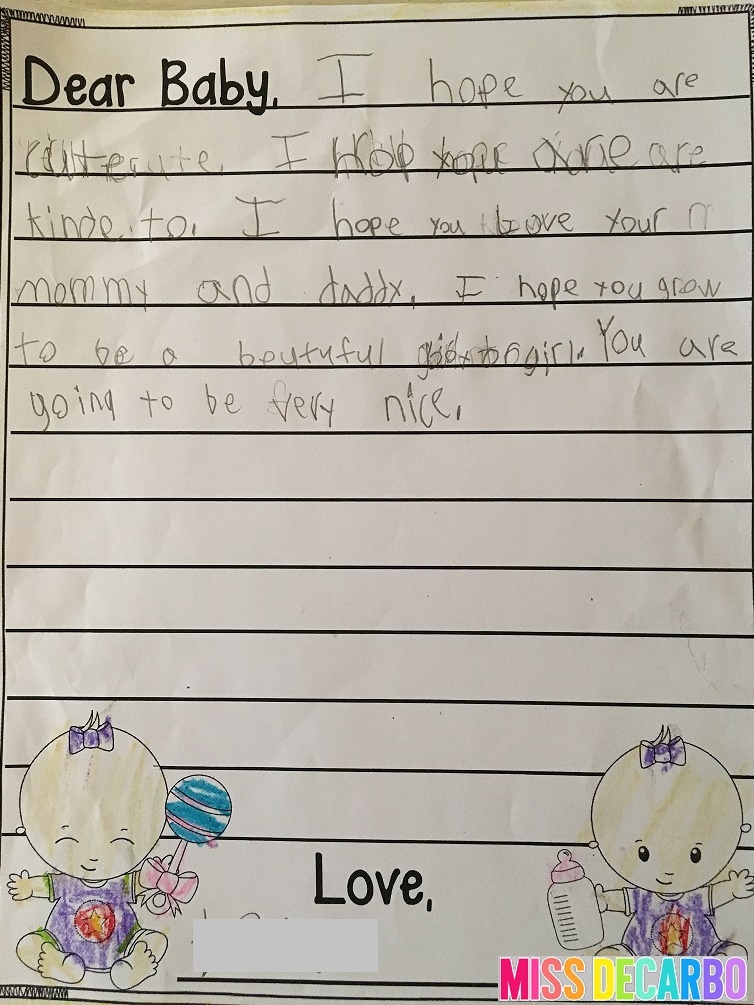 Dear Baby, I hope you are
cute. I hope you are
kinde. to. I hope you love your
mommy and daddy. I hope you grow
to be a beutuful girl. You are
going to be very nice.
Love,
MISS DECARBO